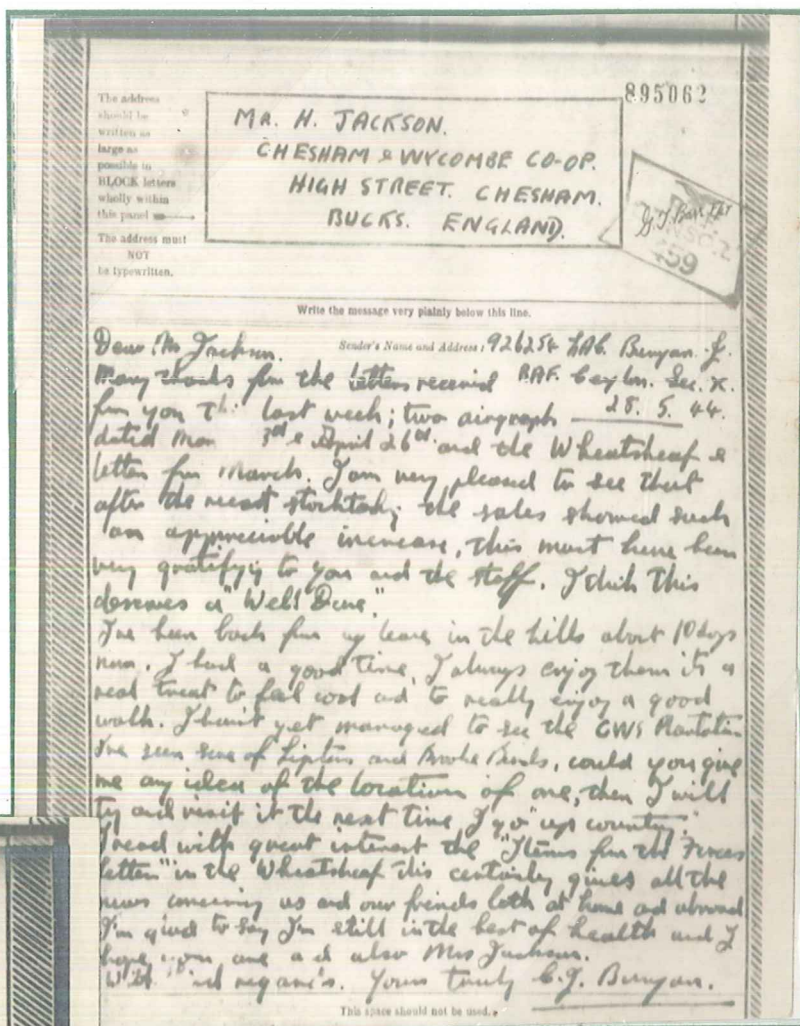 895062
The address
should be
written as
large as
possible in
BLOCK letters
wholly within
this panel
The address must
NOT
be typewritten.
MR. H. JACKSON.
CHESHAM & WYCOMBE CO-OP.
HIGH STREET. CHESHAM.
BUCKS. ENGLAND.
459
Write the message very plainly below this line.
Dear Mr Jackson.
Sender's Name and Address: 926254 LAC. Bunyan. J.
Many thanks for the letters received RAF. Ceylon. Sec. X.
from you this last week; two airgraph 28. 5. 44.
dated Mar 3rd & April 26th and the Wheatsheaf &
letter for March. I am very pleased to see that
after the recent stocktaking the sales showed such
an appreciable increase, this must have been
very gratifying to you and the staff. I think this
deserves a "Well Done".
I've been back from my leave in the hills about 10 days
now. I had a good time, I always enjoy them its a
real treat to feel cool and to really enjoy a good
walk. I haven't yet managed to see the CWS Plantation
I've seen some of Liptons and Brooke Bonds, could you give
me any idea of the location of one, then I will
try and visit it the next time I go "up country."
I read with great interest the "Items from the Forces
letters" in the Wheatsheaf this certainly gives all the
news concerning us and our friends both at home and abroad
I'm glad to say I'm still in the best of health and I
hope you are and also Mrs Jackson.
With kind regards. Yours truly C.J. Bunyan.
This space should not be used.